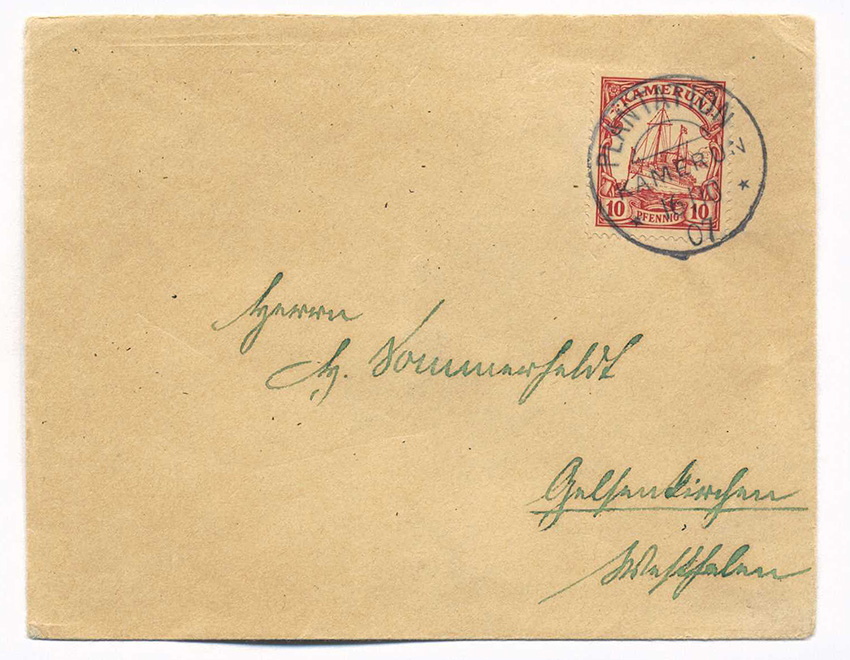 KAMERUN
10 PFENNIG 10
PLANTATION
KAMERUN
07
Herrn
H. Sommerfeldt
Gelsenkirchen
Westfalen